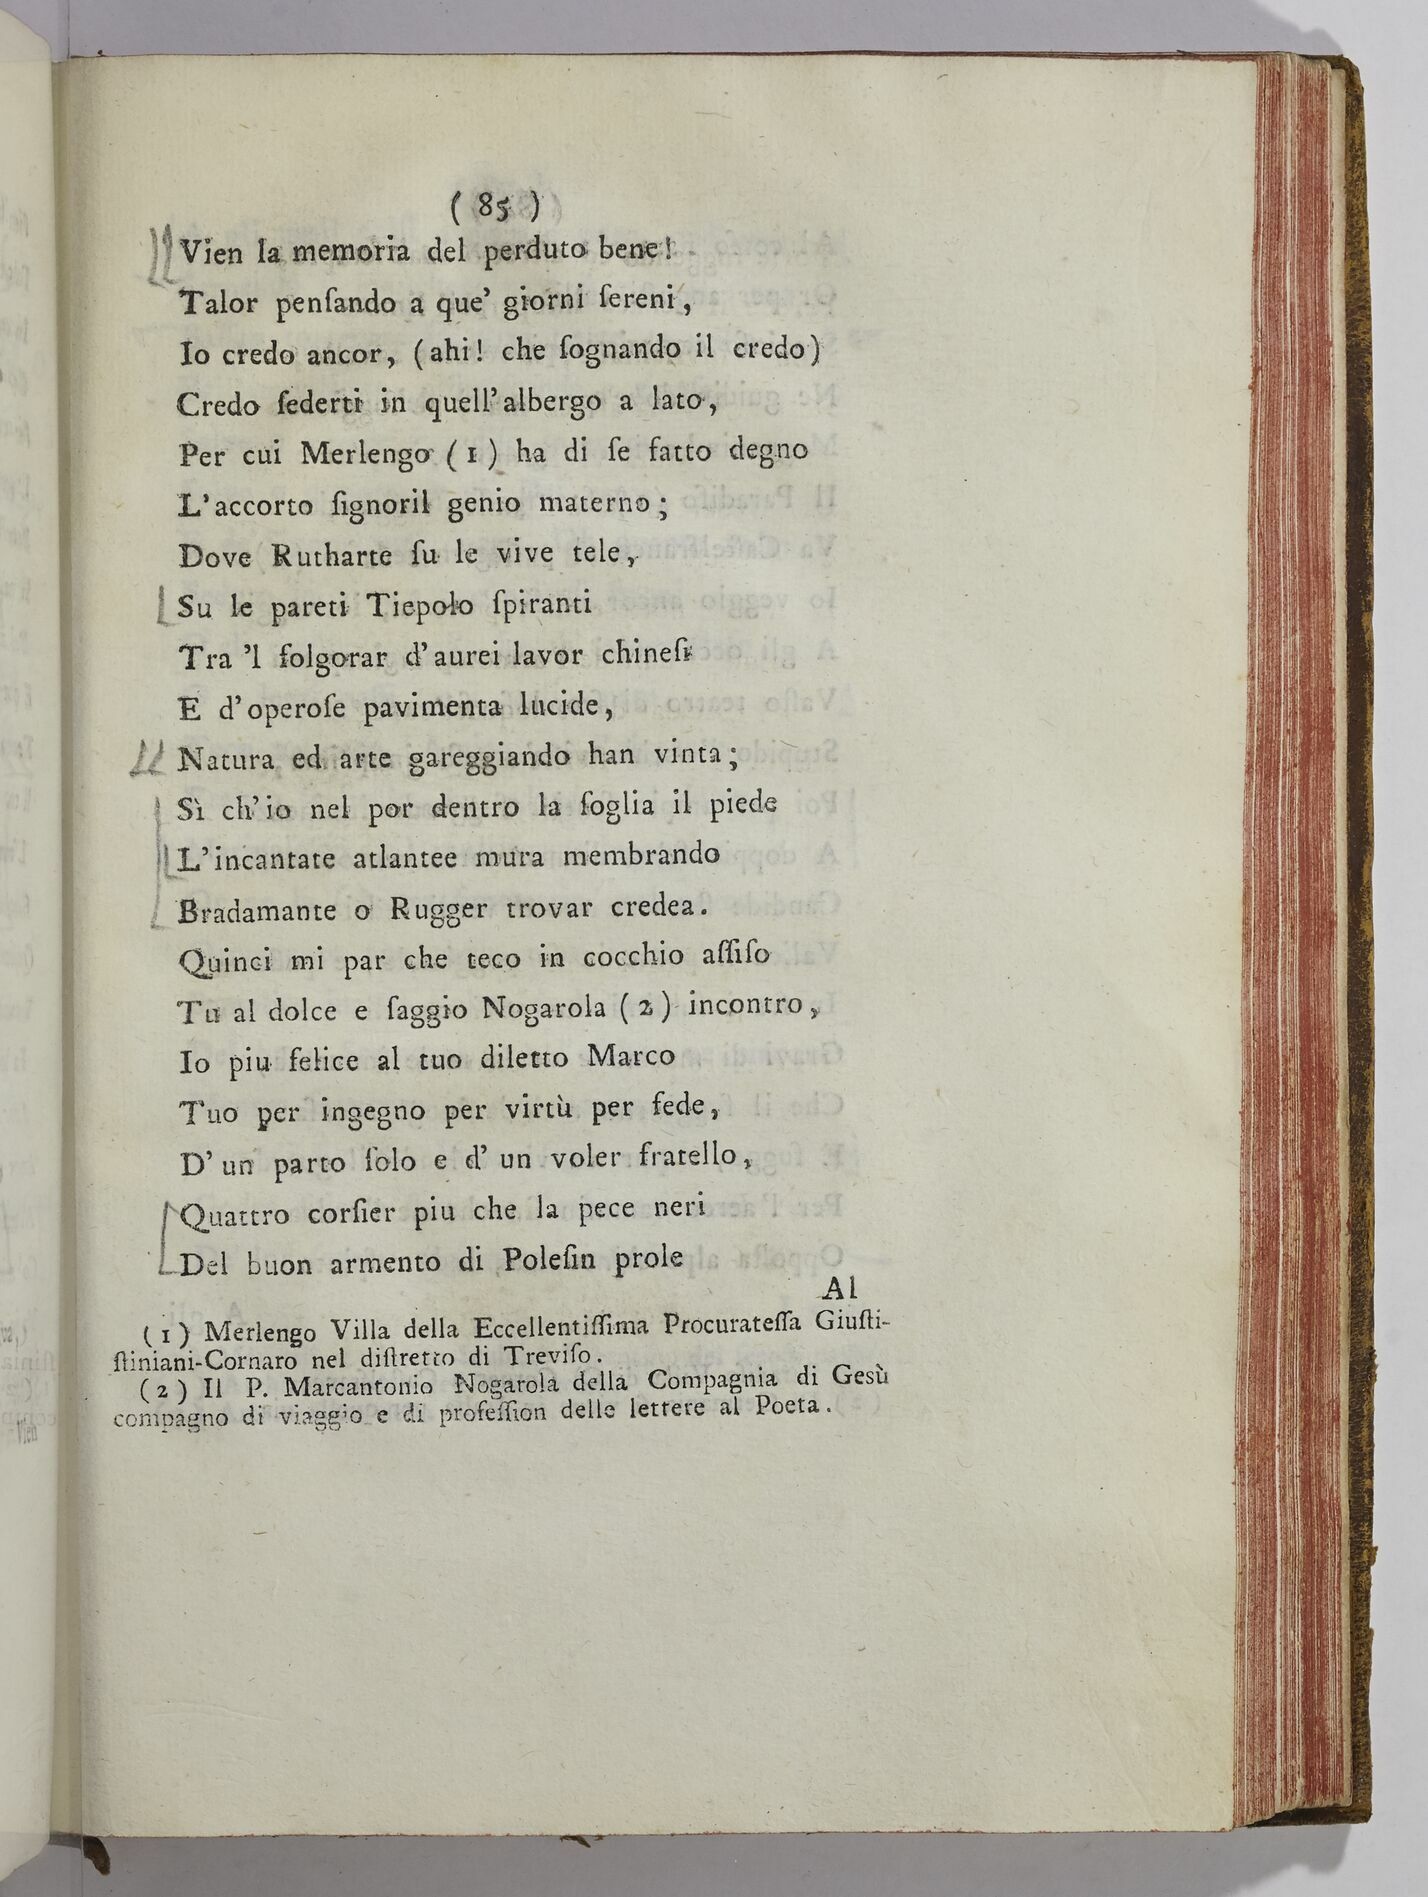 ( 85 )
Vien la memoria del perduto bene!
Talor penſando a que' giorni ſereni,
Io credo ancor, (ahi! che ſognando il credo)
Credo ſederti in quell'albergo a lato,
Per cui Merlengo (1) ha di ſe fatto degno
L'accorto ſignoril genio materno;
Dove Rutharte ſu le vive tele,
Su le pareti Tiepolo ſpiranti
Tra 'l folgorar d'aurei lavor chineſi
E d'operoſe pavimenta lucide,
Natura ed arte gareggiando han vinta;
Sì ch'io nel por dentro la ſoglia il piede
L'incantate atlantee mura membrando
Bradamante o Rugger trovar credea.
Quinci mi par che teco in cocchio aſſiſo
Tu al dolce e ſaggio Nogarola (2) incontro,
Io piu felice al tuo diletto Marco
Tuo per ingegno per virtù per fede,
D'un parto ſolo e d'un voler fratello,
Quattro corſier piu che la pece neri
Del buon armento di Poleſin prole
Al
(1) Merlengo Villa della Eccellentiſſima Procurateſſa Giuſti-
ſtiniani-Cornaro nel diſtretto di Treviſo.
(2) Il P. Marcantonio Nogarola della Compagnia di Gesù
compagno di viaggio e di profeſſion delle lettere al Poeta.